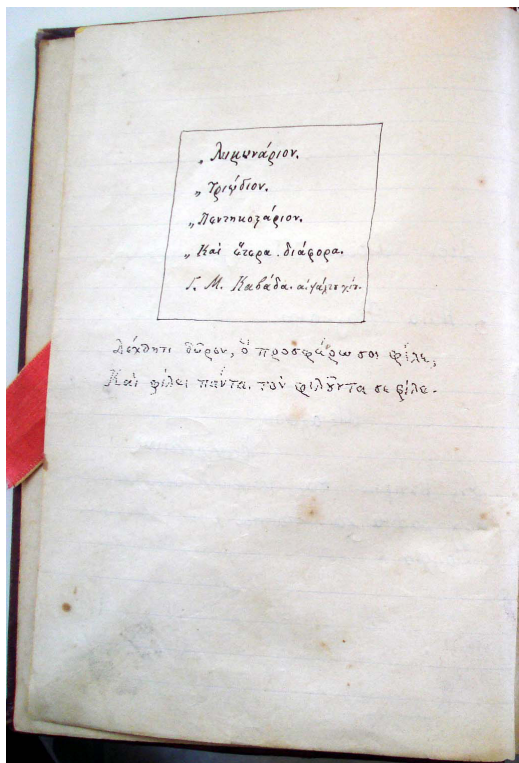 „ Λυκωνάριον.
„ Τριῴδιον.
„ Πεντηκοστάριον.
„ Καὶ ἕτερα . διάφορα.
Γ. Μ. Καβάδα.
Δέχθητι δῶρον, ὃ προσφέρω σοι φίλε,
Καὶ φίλει πάντα τὸν φιλοῦντα σε φίλε.